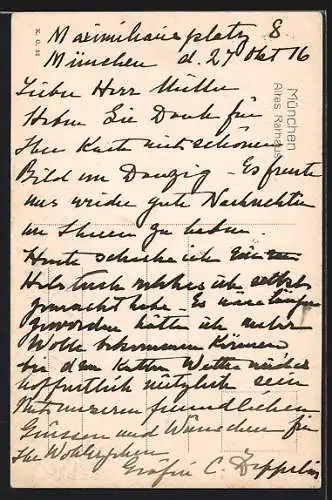 Maximiliansplatz 8
München d. 27 Okt 16
Lieber Herr Müller
Haben Sie Dank für
Ihre Karte mit schönem
Bild von Danzig - Es freute
uns wieder gute Nachrichten
von Ihnen zu haben.
Heute schicke ich Ein
Halstuch welches ich selbst
gemacht habe - Es wäre länger
geworden hätte ich mehr
Wolle bekommen können
bei dem kalten Wetter wird es
hoffentlich nützlich sein
Mit unseren freundlichen
Grüssen und Wünschen für
Ihr Wohlergehen
Gräfin C. Zeppelin
München
Altes Rathaus